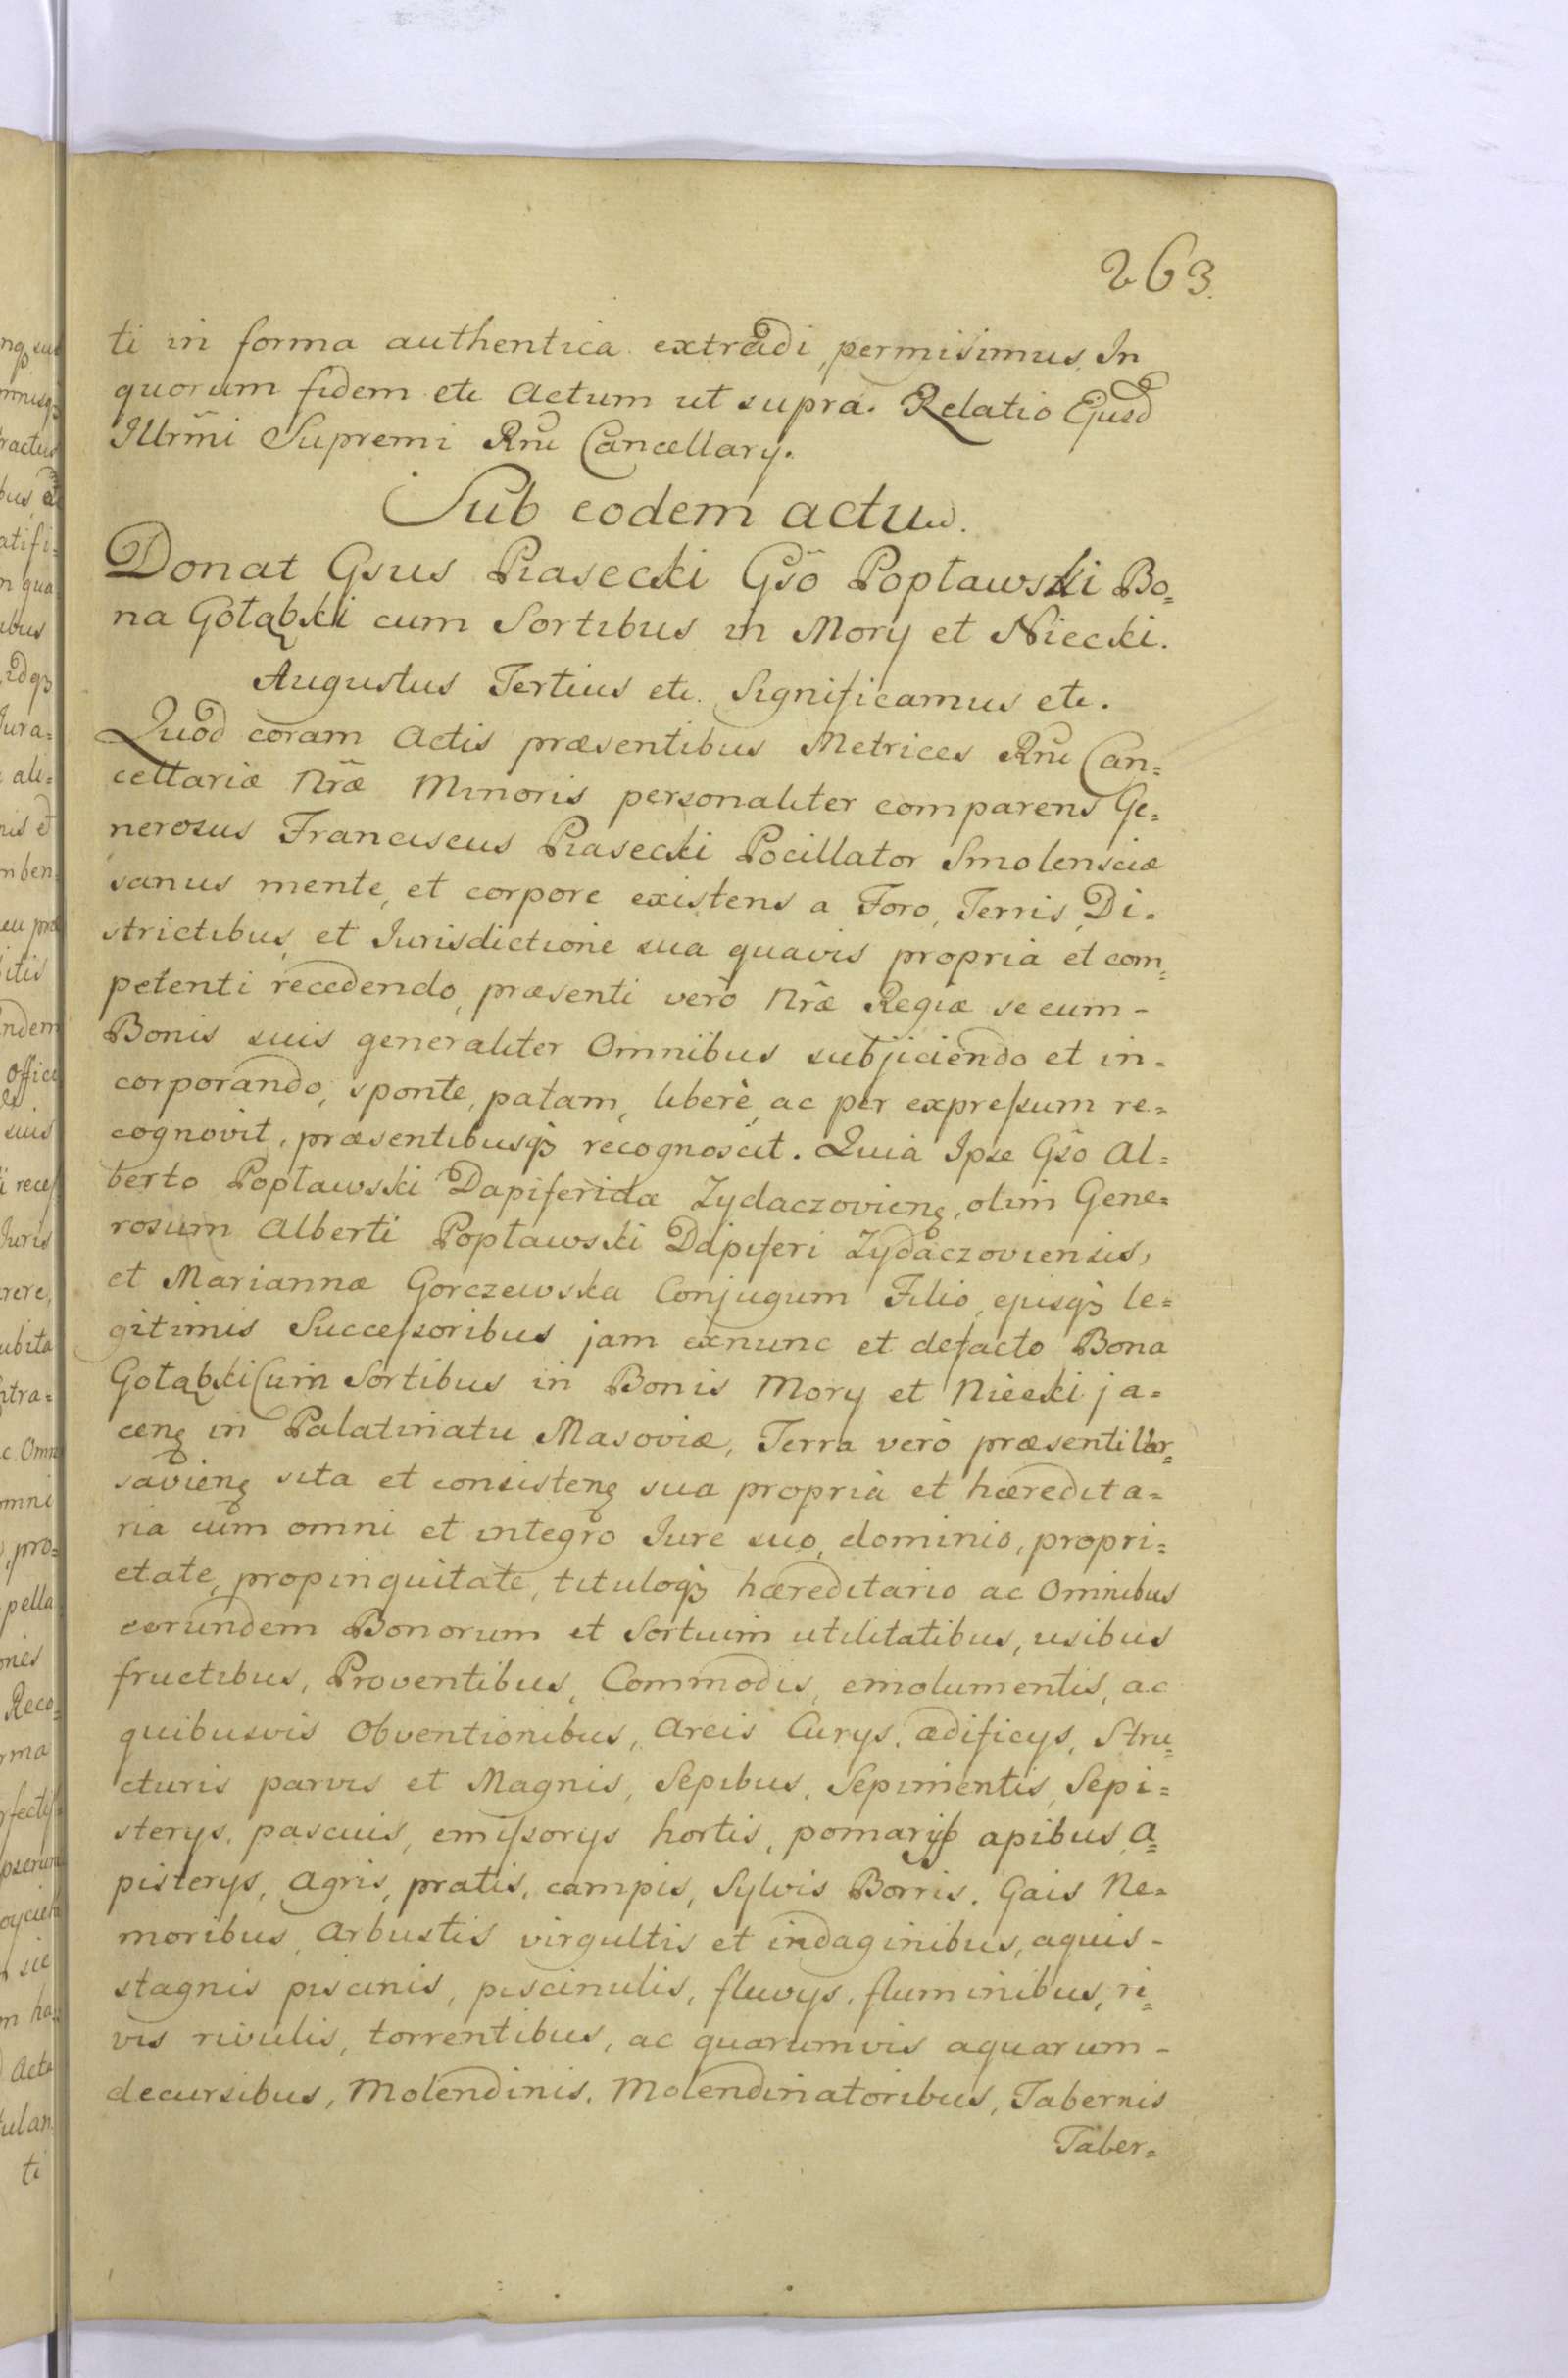 263.
ti in forma authentica extradi, permisimus. In
quorum fidem etc Actum ut supra. Relatio Ejusd
Illrmi Supremi Rni Cancellary.
Sub eodem actu.
Donat Gsus Piasecki Gso Popławski Bo=
na Gołąbki cum Sortibus in Mory et Niecki.
Augustus Tertius etc. Significamus etc.
Quod coram Actis præsentibus Metrices Rni Can=
cellariæ Nræ Minoris personaliter comparens Ge=
nerosus Franciscus Piasecki Pocillator Smolensciæ
sanus mente, et corpore existens a Foro, Terris, Di=
strictibus, et Jurisdictione sua quavis propria et com=
petenti recedendo, præsenti verò Nræ Regiæ se cum -
Bonis suis generaliter Omnibus subjiciendo et in=
corporando, sponte, palam, liberè, ac per expressum re=
cognovit, præsentibusq3 recognoscit. Quia Ipse Gso Al=
berto Popławski Dapiferidæ Zydaczovieng, olim Gene=
rosum Alberti Popławski Dapiferi Zydaczoviensis,
et Mariannæ Gorczewska Conjugum Filio, ejusq3 le=
gitimis Successoribus jam exnunc et defacto Bona
Gołąbki Cum Sortibus in Bonis Mory et Niecki ja=
ceng in Palatinatu Masoviæ, Terra verò præsenti Var=
savieng sita et consisteng sua propria et hæredita=
ria cum omni et integro Jure suo, dominio, propri=
etate, propinquitate, tituloq3 hæreditario ac Omnibus
eorundem Bonorum et Sortium utilitatibus, usibus
fructibus, Proventibus, Commodis, emolumentis, ac
quibusvis Obventionibus, Areis Curys, ædificys, Stru=
cturis parvis et Magnis, Sepibus, Sepimentis, Sepi=
sterys, pascuis, emissorys hortis, pomarys apibus, A=
pisterys, Agris, pratis, campis, Sylvis Borris, Gais Ne=
moribus, Arbustis virgultis et indaginibus, aquis -
stagnis piscinis, piscinulis, fluvys, fluminibus, ri=
vis rivulis, torrentibus, ac quarumvis aquarum -
decursibus, Molendinis, Molendinatoribus, Tabernis
Taber=